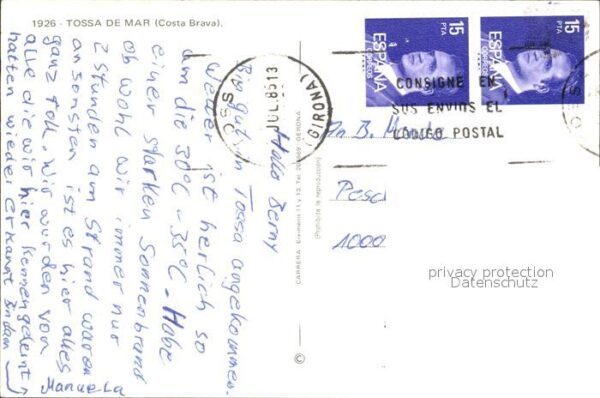 1926 - TOSSA DE MAR (Costa Brava).
Hallo Berny
Bin gut in Tossa angekommen.
Wetter ist herlich so
um die 30°C - 35°C - Habe
einen starken Sonnenbrand
ob wohl wir immer nur
2 Stunden am Strand waren
ansonsten ist es hier alles
ganz toll, wir wurden von
alle die wir hier kennengelernt
hatten wieder erkannt
Manuela
CARRERA - Eiximenis 11 y 13. Tel. GERONA
(Prohibida la reproducción)
15 PTA
ESPAÑA
CORREOS
15 PTA
ESPAÑA
CORREOS
JUL. 85 13
(GIRONA)
CONSIGNE EN
SUS ENVIOS EL
CODIGO POSTAL
An B.
1000
privacy protection
Datenschutz